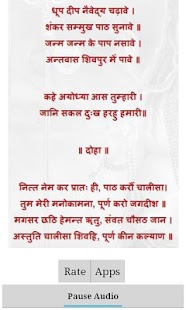 धूप दीप नैवेद्य चढ़ावे ।
शंकर सम्मुख पाठ सुनावे ॥
जन्म जन्म के पाप नसावे ।
अन्तवास शिवपुर में पावे ॥
कहे अयोध्या आस तुम्हारी ।
जानि सकल दुःख हरहु हमारी॥
॥ दोहा ॥
नित्त नेम कर प्रातः ही, पाठ करौं चालीसा।
तुम मेरी मनोकामना, पूर्ण करो जगदीश ॥
मगसर छठि हेमन्त ॠतु, संवत चौसठ जान ।
अस्तुति चालीसा शिवहि, पूर्ण कीन कल्याण ॥
Rate Apps
Pause Audio